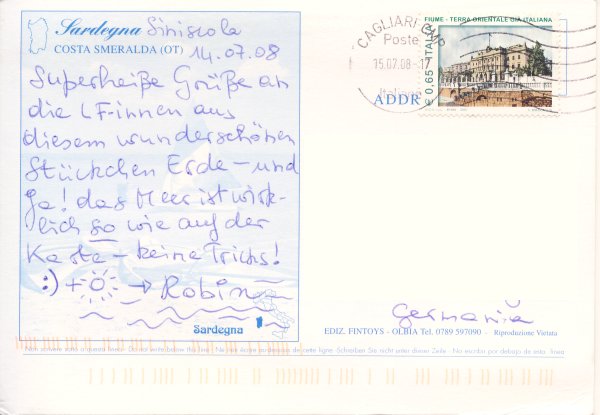 Sardegna Siniscola
COSTA SMERALDA (OT) 14.07.08
Superheiße Grüße an
die LF-innen aus
diesem wunderschönen
Stückchen Erde – und
Ja! das Meer ist wirk-
lich so wie auf der
Karte – keine Tricks!
:) + → Robin
Sardegna
FIUME - TERRA ORIENTALE GIÀ ITALIANA
ITALIA € 0.65
CAGLIARI CMP
Poste
15.07.08-17
Italiane
ADDR
Germania
EDIZ. FINTOYS - OLBIA Tel. 0789 597090 - Riproduzione Vietata
Non scrivere sotto a questa linea - Do not write below this line - Ne rien écrire au-dessous de cette ligne - Schreiben Sie nicht unter dieser Zeile - No escribir por debajo de esta linea